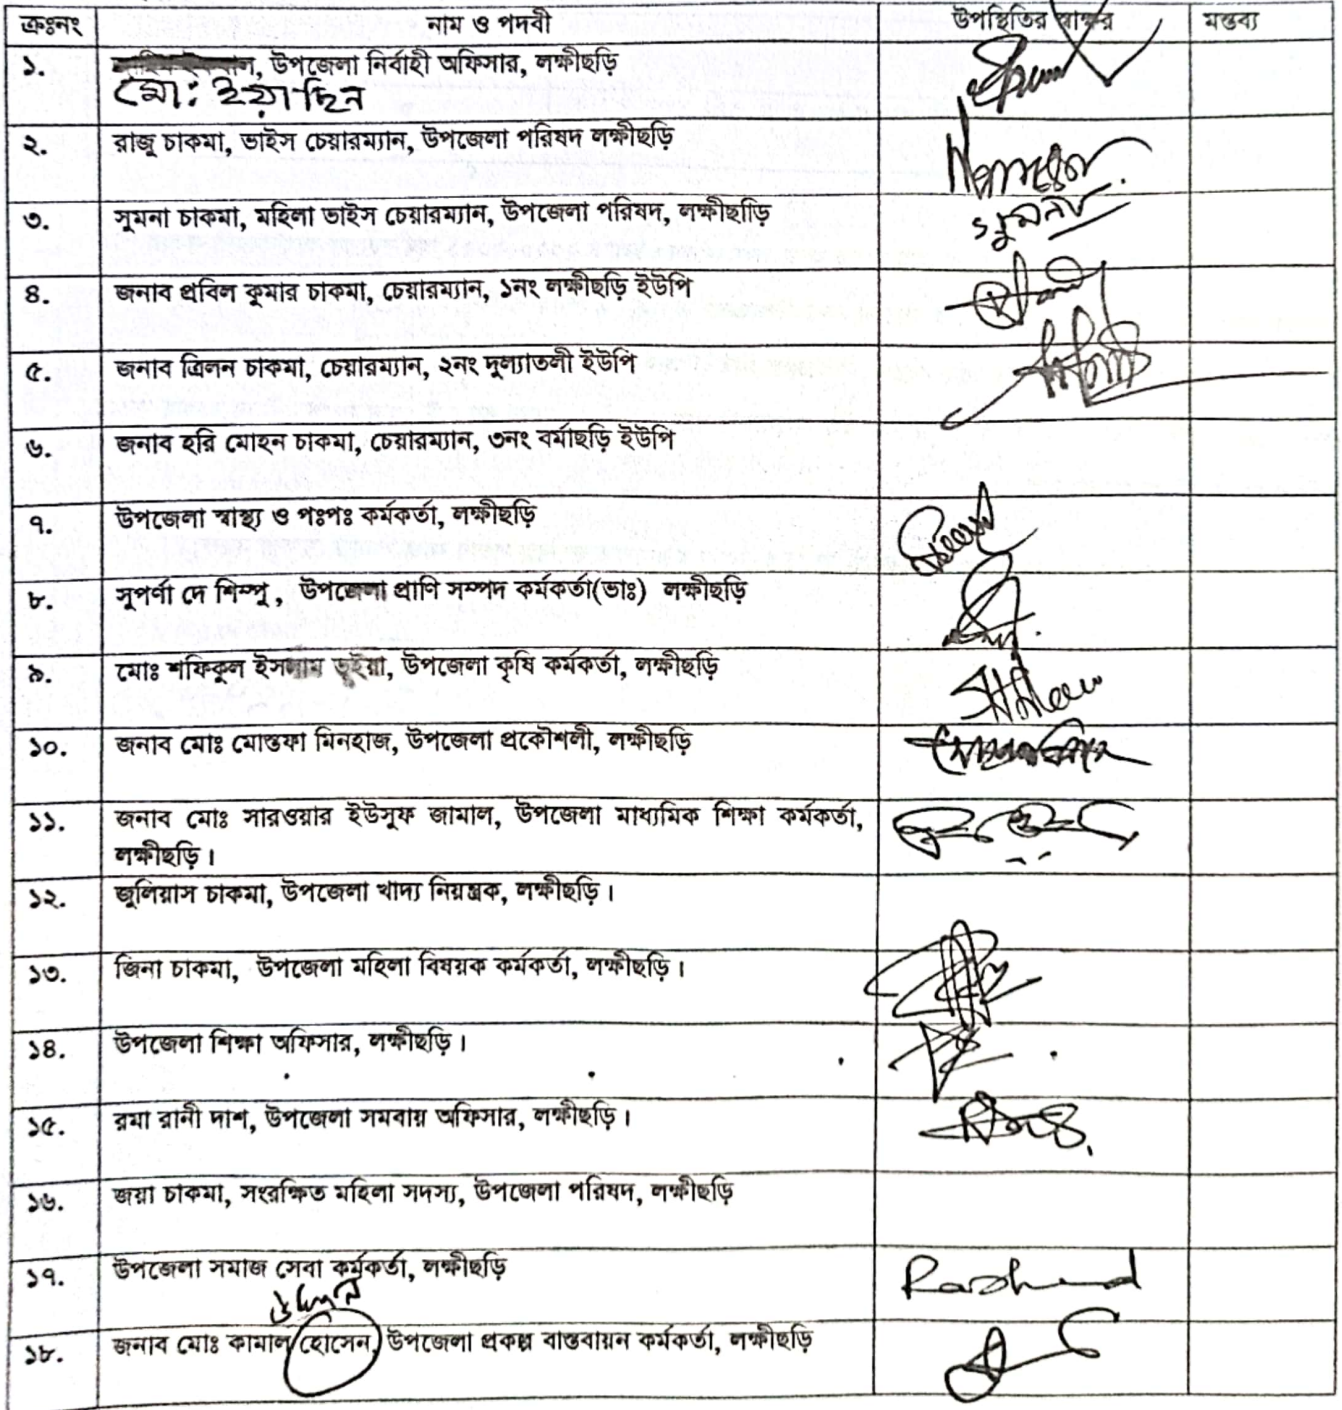 ক্রঃনং নাম ও পদবী উপস্থিতির স্বাক্ষর মন্তব্য
১. , উপজেলা নির্বাহী অফিসার, লক্ষীছড়ি
মো: ইয়াছিন
২. রাজু চাকমা, ভাইস চেয়ারম্যান, উপজেলা পরিষদ লক্ষীছড়ি
৩. সুমনা চাকমা, মহিলা ভাইস চেয়ারম্যান, উপজেলা পরিষদ, লক্ষীছড়িি সুমনা
৪. জনাব প্রবিল কুমার চাকমা, চেয়ারম্যান, ১নং লক্ষীছড়ি ইউপি
৫. জনাব ত্রিলন চাকমা, চেয়ারম্যান, ২নং দুল্যাতলী ইউপি
৬. জনাব হরি মোহন চাকমা, চেয়ারম্যান, ৩নং বর্মাছড়ি ইউপি
৭. উপজেলা স্বাস্থ্য ও পঃপঃ কর্মকর্তা, লক্ষীছড়ি
৮. সুপর্ণা দে শিম্পু , উপজেলা প্রাণি সম্পদ কর্মকর্তা(ভাঃ) লক্ষীছড়ি
৯. মোঃ শফিকুল ইসলাম ভূইয়া, উপজেলা কৃষি কর্মকর্তা, লক্ষীছড়ি
১০. জনাব মোঃ মোস্তফা মিনহাজ, উপজেলা প্রকৌশলী, লক্ষীছড়ি
১১. জনাব মোঃ সারওয়ার ইউসুফ জামাল, উপজেলা মাধ্যমিক শিক্ষা কর্মকর্তা,
লক্ষীছড়ি।
১২. জুলিয়াস চাকমা, উপজেলা খাদ্য নিয়ন্ত্রক, লক্ষীছড়ি।
১৩. জিনা চাকমা, উপজেলা মহিলা বিষয়ক কর্মকর্তা, লক্ষীছড়ি।
১৪. উপজেলা শিক্ষা অফিসার, লক্ষীছড়ি।
১৫. রমা রানী দাশ, উপজেলা সমবায় অফিসার, লক্ষীছড়ি।
১৬. জয়া চাকমা, সংরক্ষিত মহিলা সদস্য, উপজেলা পরিষদ, লক্ষীছড়ি
১৭. উপজেলা সমাজ সেবা কর্মকর্তা, লক্ষীছড়ি Rashed
১৮. জনাব মোঃ কামাল হোসেন, উপজেলা প্রকল্প বাস্তবায়ন কর্মকর্তা, লক্ষীছড়ি